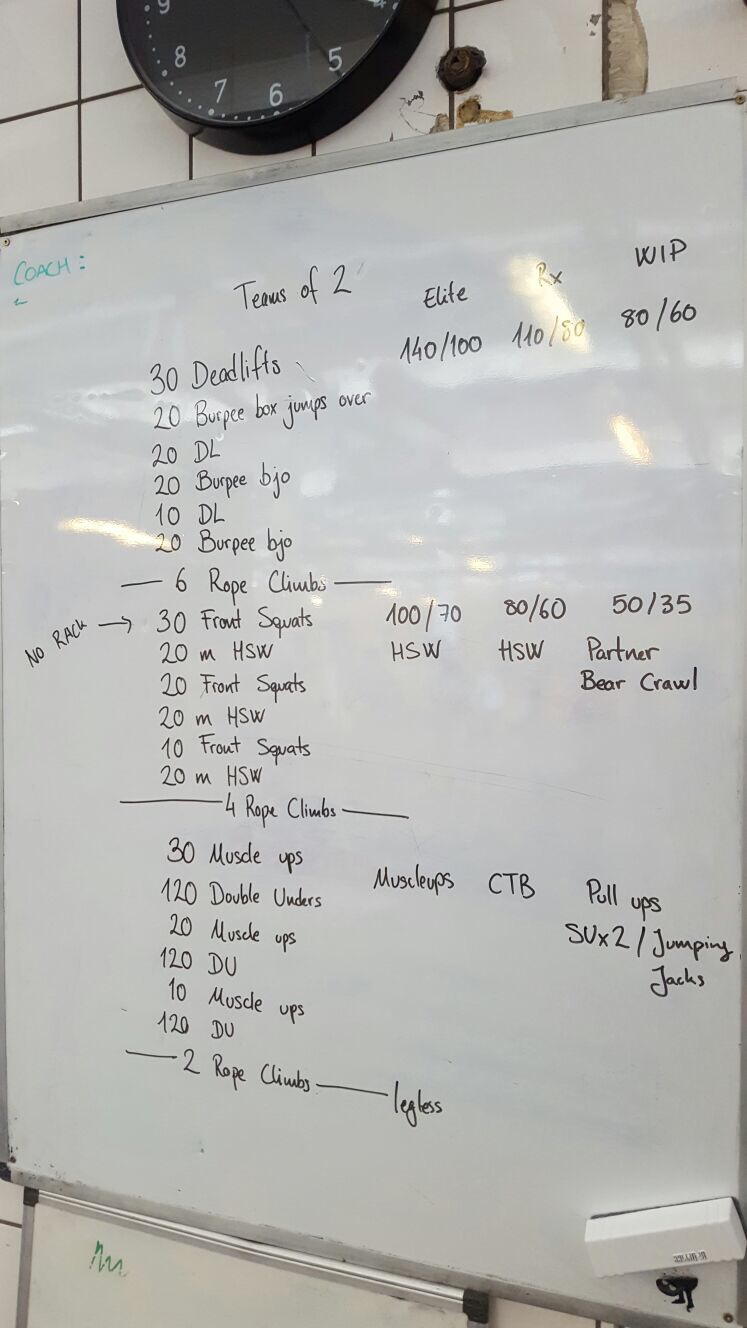 9
8
7
6
5
COACH:
Teams of 2 Elite Rx WIP
30 Deadlifts 140/100 110/80 80/60
20 Burpee box jumps over
20 DL
20 Burpee bjo
10 DL
20 Burpee bjo
6 Rope Climbs
NO RACK → 30 Front Squats 100/70 80/60 50/35
20 m HSW HSW HSW Partner
20 Front Squats Bear Crawl
20 m HSW
10 Front Squats
20 m HSW
4 Rope Climbs
30 Muscle ups Muscleups CTB Pull ups
120 Double Unders SUx2 / Jumping
20 Muscle ups Jacks
120 DU
10 Muscle ups
120 DU
2 Rope Climbs legless